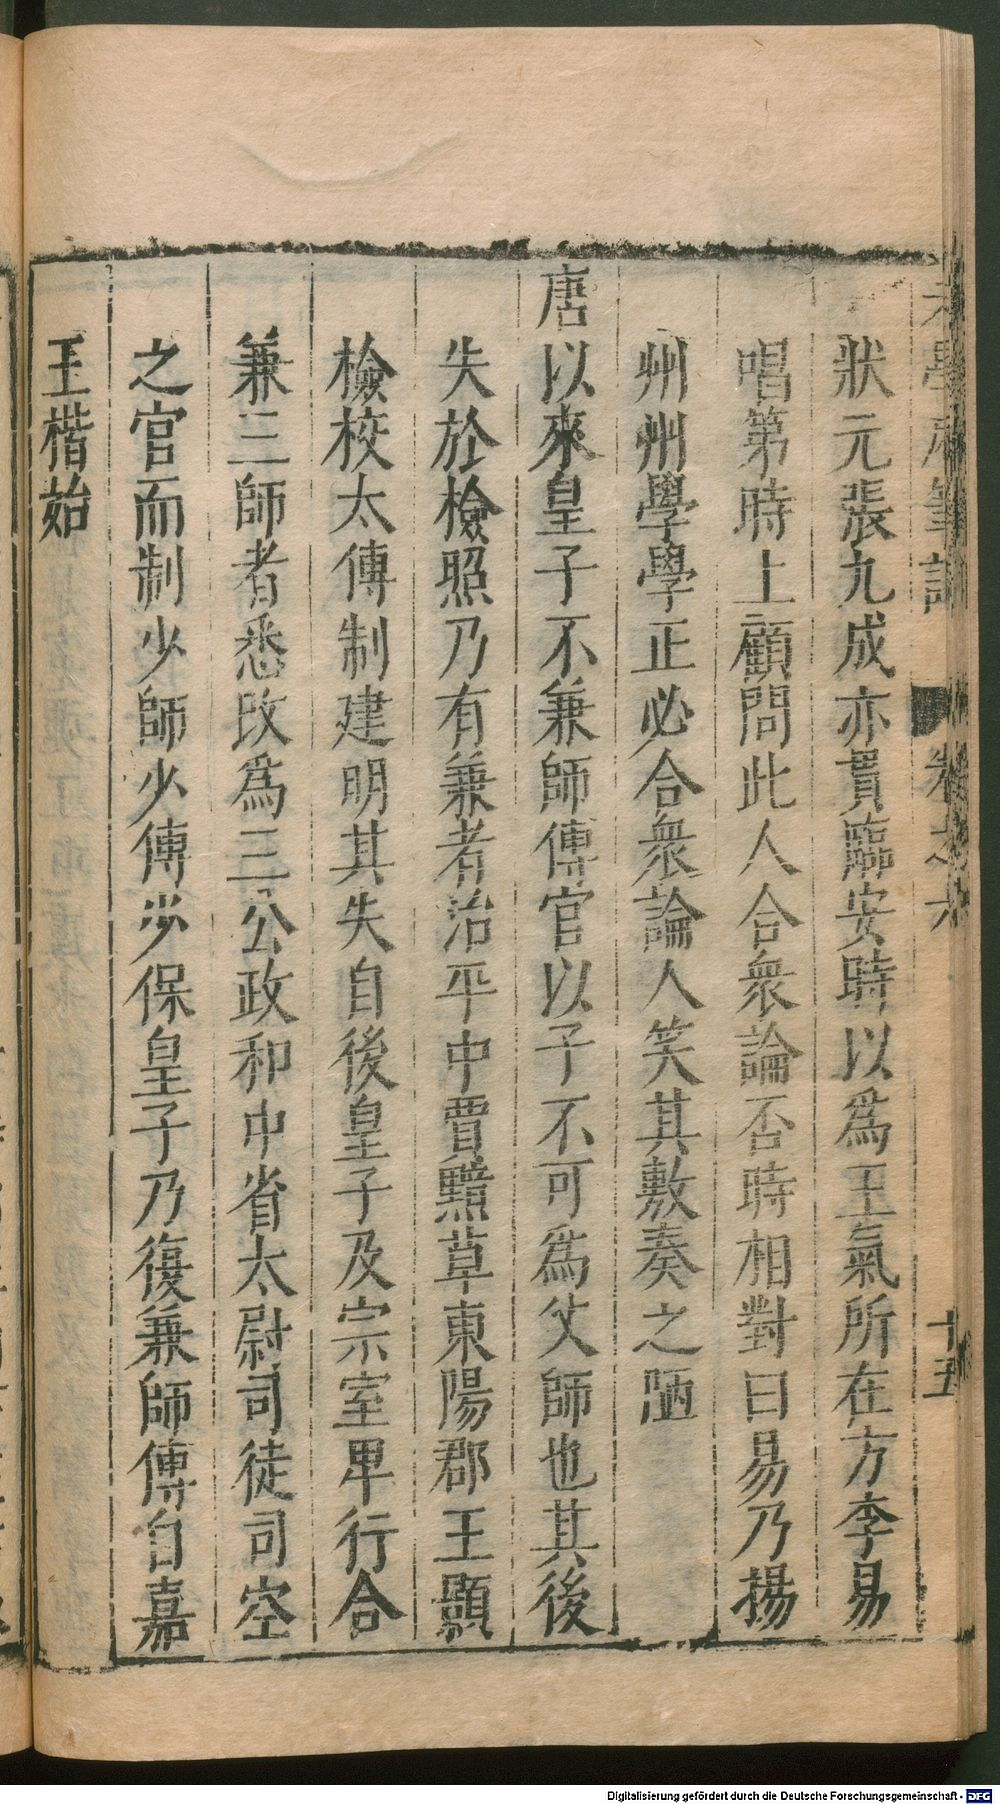 老學庵筆記 卷之六 十五
狀元張九成亦貫臨安時以為王氣所在方李易
唱第時上顧問此人合衆論否時相對曰易乃揚
州州學學正必合衆論人笑其敷奏之陋
唐以來皇子不兼師傅官以子不可為父師也其後
失於檢照乃有兼者治平中賈黯草東陽郡王顥
檢校太傅制建明其失自後皇子及宗室卑行合
兼三師者悉改為三公政和中省太尉司徒司空
之官而制少師少傅少保皇子乃復兼師傅自嘉
王楷始
Digitalisierung gefördert durch die Deutsche Forschungsgemeinschaft - DFG